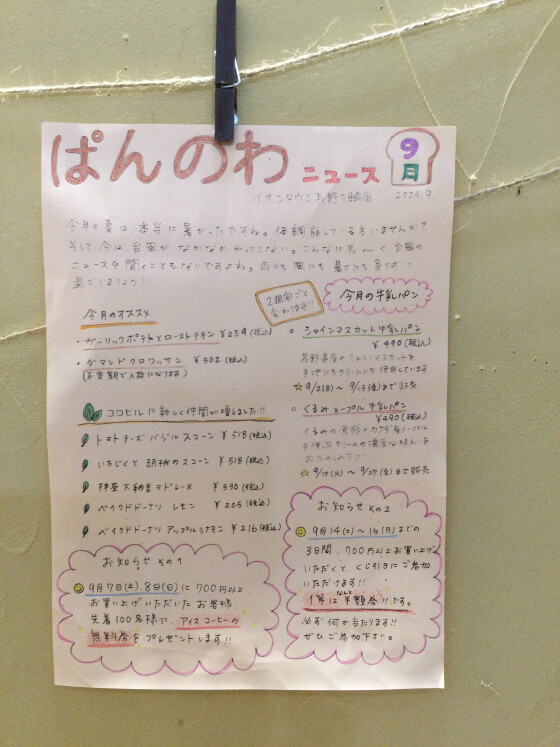 ぱんのわ
ニュース
9
月
2024.9.
イオンタウン
今年の夏は本当に暑かったですね。体調崩している方いませんか?
そして今は台風がなかなかやってこない。こんなに長〜く台風の
ニュースを聞くこともないですよね。雨にも風にも暑さにも負けずに
過ごしましょう!!
今月のオススメ
・ガーリックポテトとローストチキン ¥259(税込)
・ダマンドクロワッサン ¥302(税込)
(不定期で入荷になります)
ココヒルに新しく仲間が増えました!!
トマトチーズバジルスコーン ¥518(税込)
いちじくと胡桃のスコーン ¥518(税込)
抹茶大納言マドレーヌ ¥330(税込)
ベイクドドーナツ レモン ¥205(税込)
ベイクドドーナツ アップルシナモン ¥216(税込)
お知らせ その1
9月7日(土)、8日(日)に700円以上
お買い上げいただいたお客様、
先着100名様に、アイスコーヒーの
無料券をプレゼントします!!
2週間ごと
変わります!!
今月の牛乳パン
シャインマスカット牛乳パン
¥490(税込)
長野県産のシャインマスカットを
生地にもクリームにも使用しています
☆9/2(月)〜9/13(金)まで販売
くるみメープル牛乳パン
¥490(税込)
くるみの食感とカナダ産メープル
を使ったクリームの濃厚な味わいを
お楽しみ下さい
☆9/17(火)〜9/27(金)まで販売
お知らせ その2
9月14(土)〜16(月)までの
3日間、700円以上お買い上げ
いただくと、くじ引きにご参加
いただけます!!
1等はなんと半額券!!です。
必ず何か当たります!!
ぜひご参加下さい。